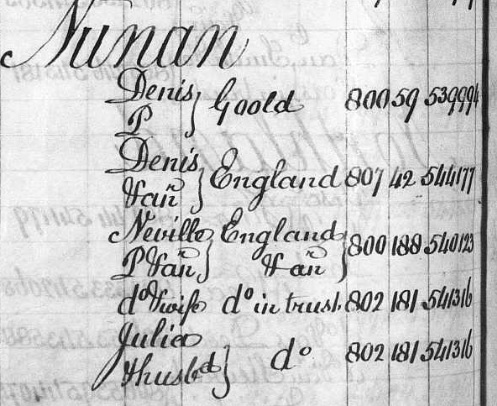 Nunan
Denis
P } Goold 800 59 539994
Denis
Vañ } England 807 42 544177
Neville England
P Vañ } Vañ } 800 188 540123
do wife do in trust 802 181 541316
Julia
& husbd } do 802 181 541316